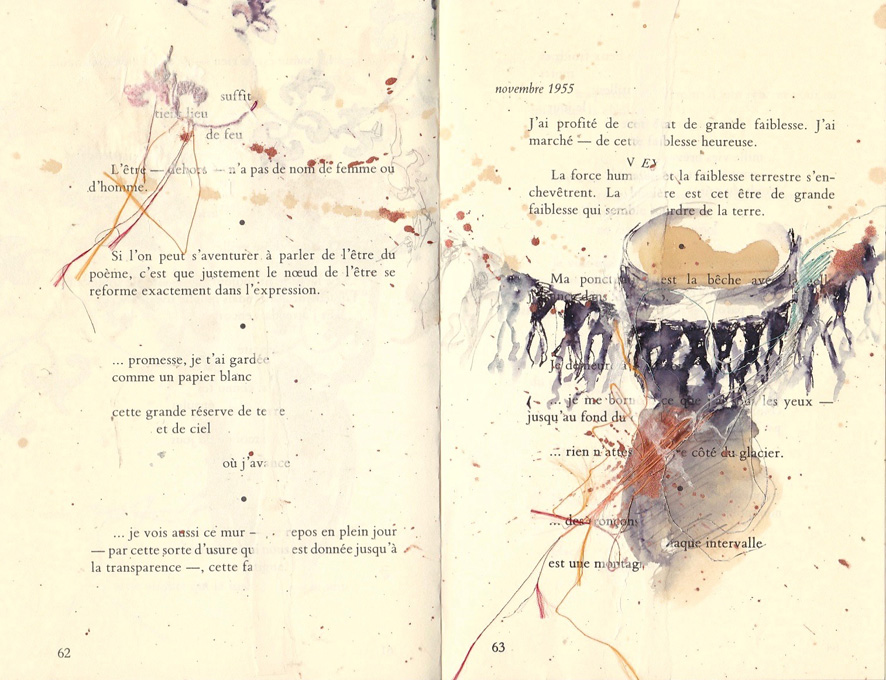 suffit
tient lieu
de feu
L'être — dehors — n'a pas de nom de femme ou
d'homme.
Si l'on peut s'aventurer à parler de l'être du
poème, c'est que justement le nœud de l'être se
reforme exactement dans l'expression.
... promesse, je t'ai gardée
comme un papier blanc
cette grande réserve de te re
et de ciel
où j'avance
... je vois aussi ce mur – repos en plein jour
— par cette sorte d'usure qu est donnée jusqu'à
la transparence —, cette fa
62
novembre 1955
J'ai profité de c at de grande faiblesse. J'ai
marché — de cette faiblesse heureuse.
V EX
La force hum et la faiblesse terrestre s'en-
chevêtrent. La ère est cet être de grande
faiblesse qui semb ordre de la terre.
Ma ponct est la bêche avec la
dans
Je demeure
... je me born ce que les yeux —
jusqu'au fond du
... rien n'attes e côté du glacier.
... des
aque intervalle
est une montag
63